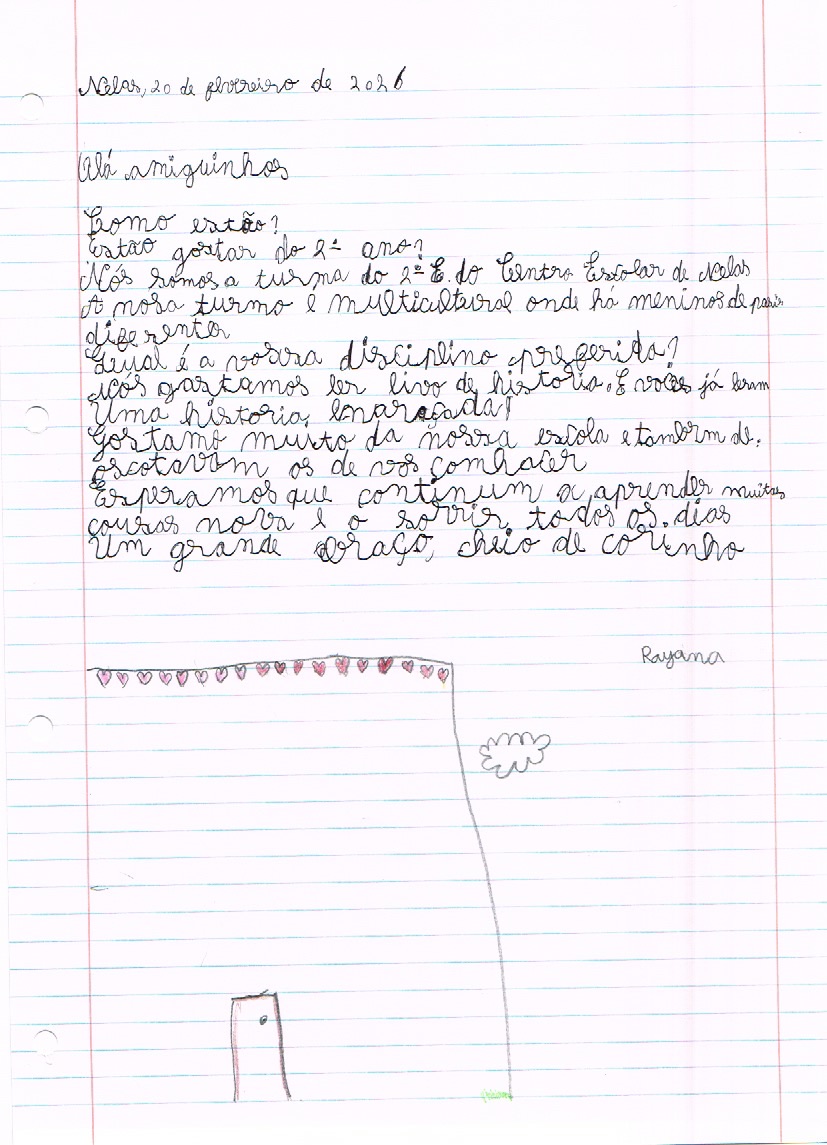 Nelas, 20 de fevereiro de 2026
Olá amiguinhos
Como estão?
Estão gostar do 2º ano?
Nós somos a turma do 2º E. do Centro Escolar de Nelas
A nosa turmo e multicultural onde há meninos de paris
diferenter
Qual é a vossa disciplino preferida?
Nós gastamos ler livo de historia. E voces já leram
Uma historia engraçada!
Gostamo muito da nossa escola e tambem de.
os de vos comhacer
Esperamos que continum a aprender muitas
cousas nova e o sorrir todos os dias
Um grande abraço, cheio de corinho
Rayana